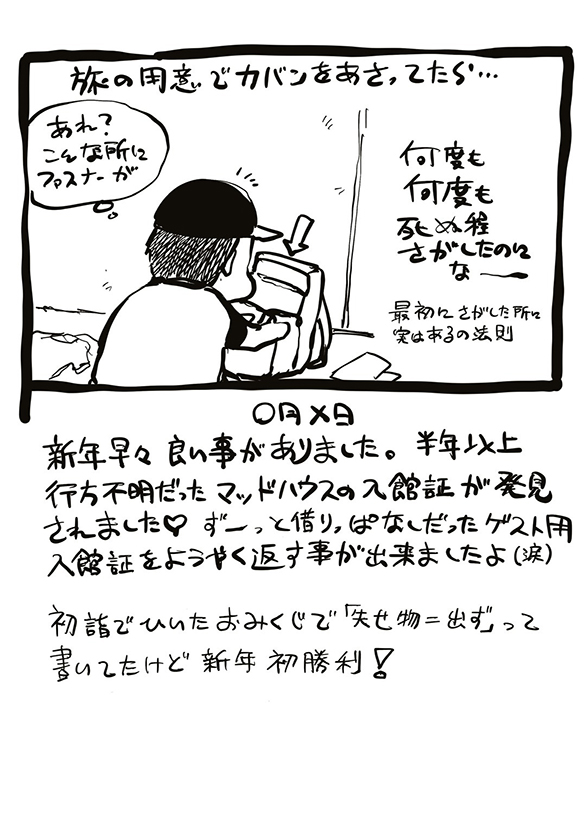 旅の用意でカバンをあさってたら…
あれ?
こんな所に
ファスナーが
何度も
何度も
死ぬ程
さがしたのに
なー
最初にさがした所に
実はあるの法則
〇月×日
新年早々良い事がありました。半年以上
行方不明だったマッドハウスの入館証が発見
されました♡ずーっと借りっぱなしだったゲスト用
入館証をようやく返す事が出来ましたよ(涙)
初詣でひいたおみくじで「失せ物=出ず」って
書いてたけど新年初勝利!